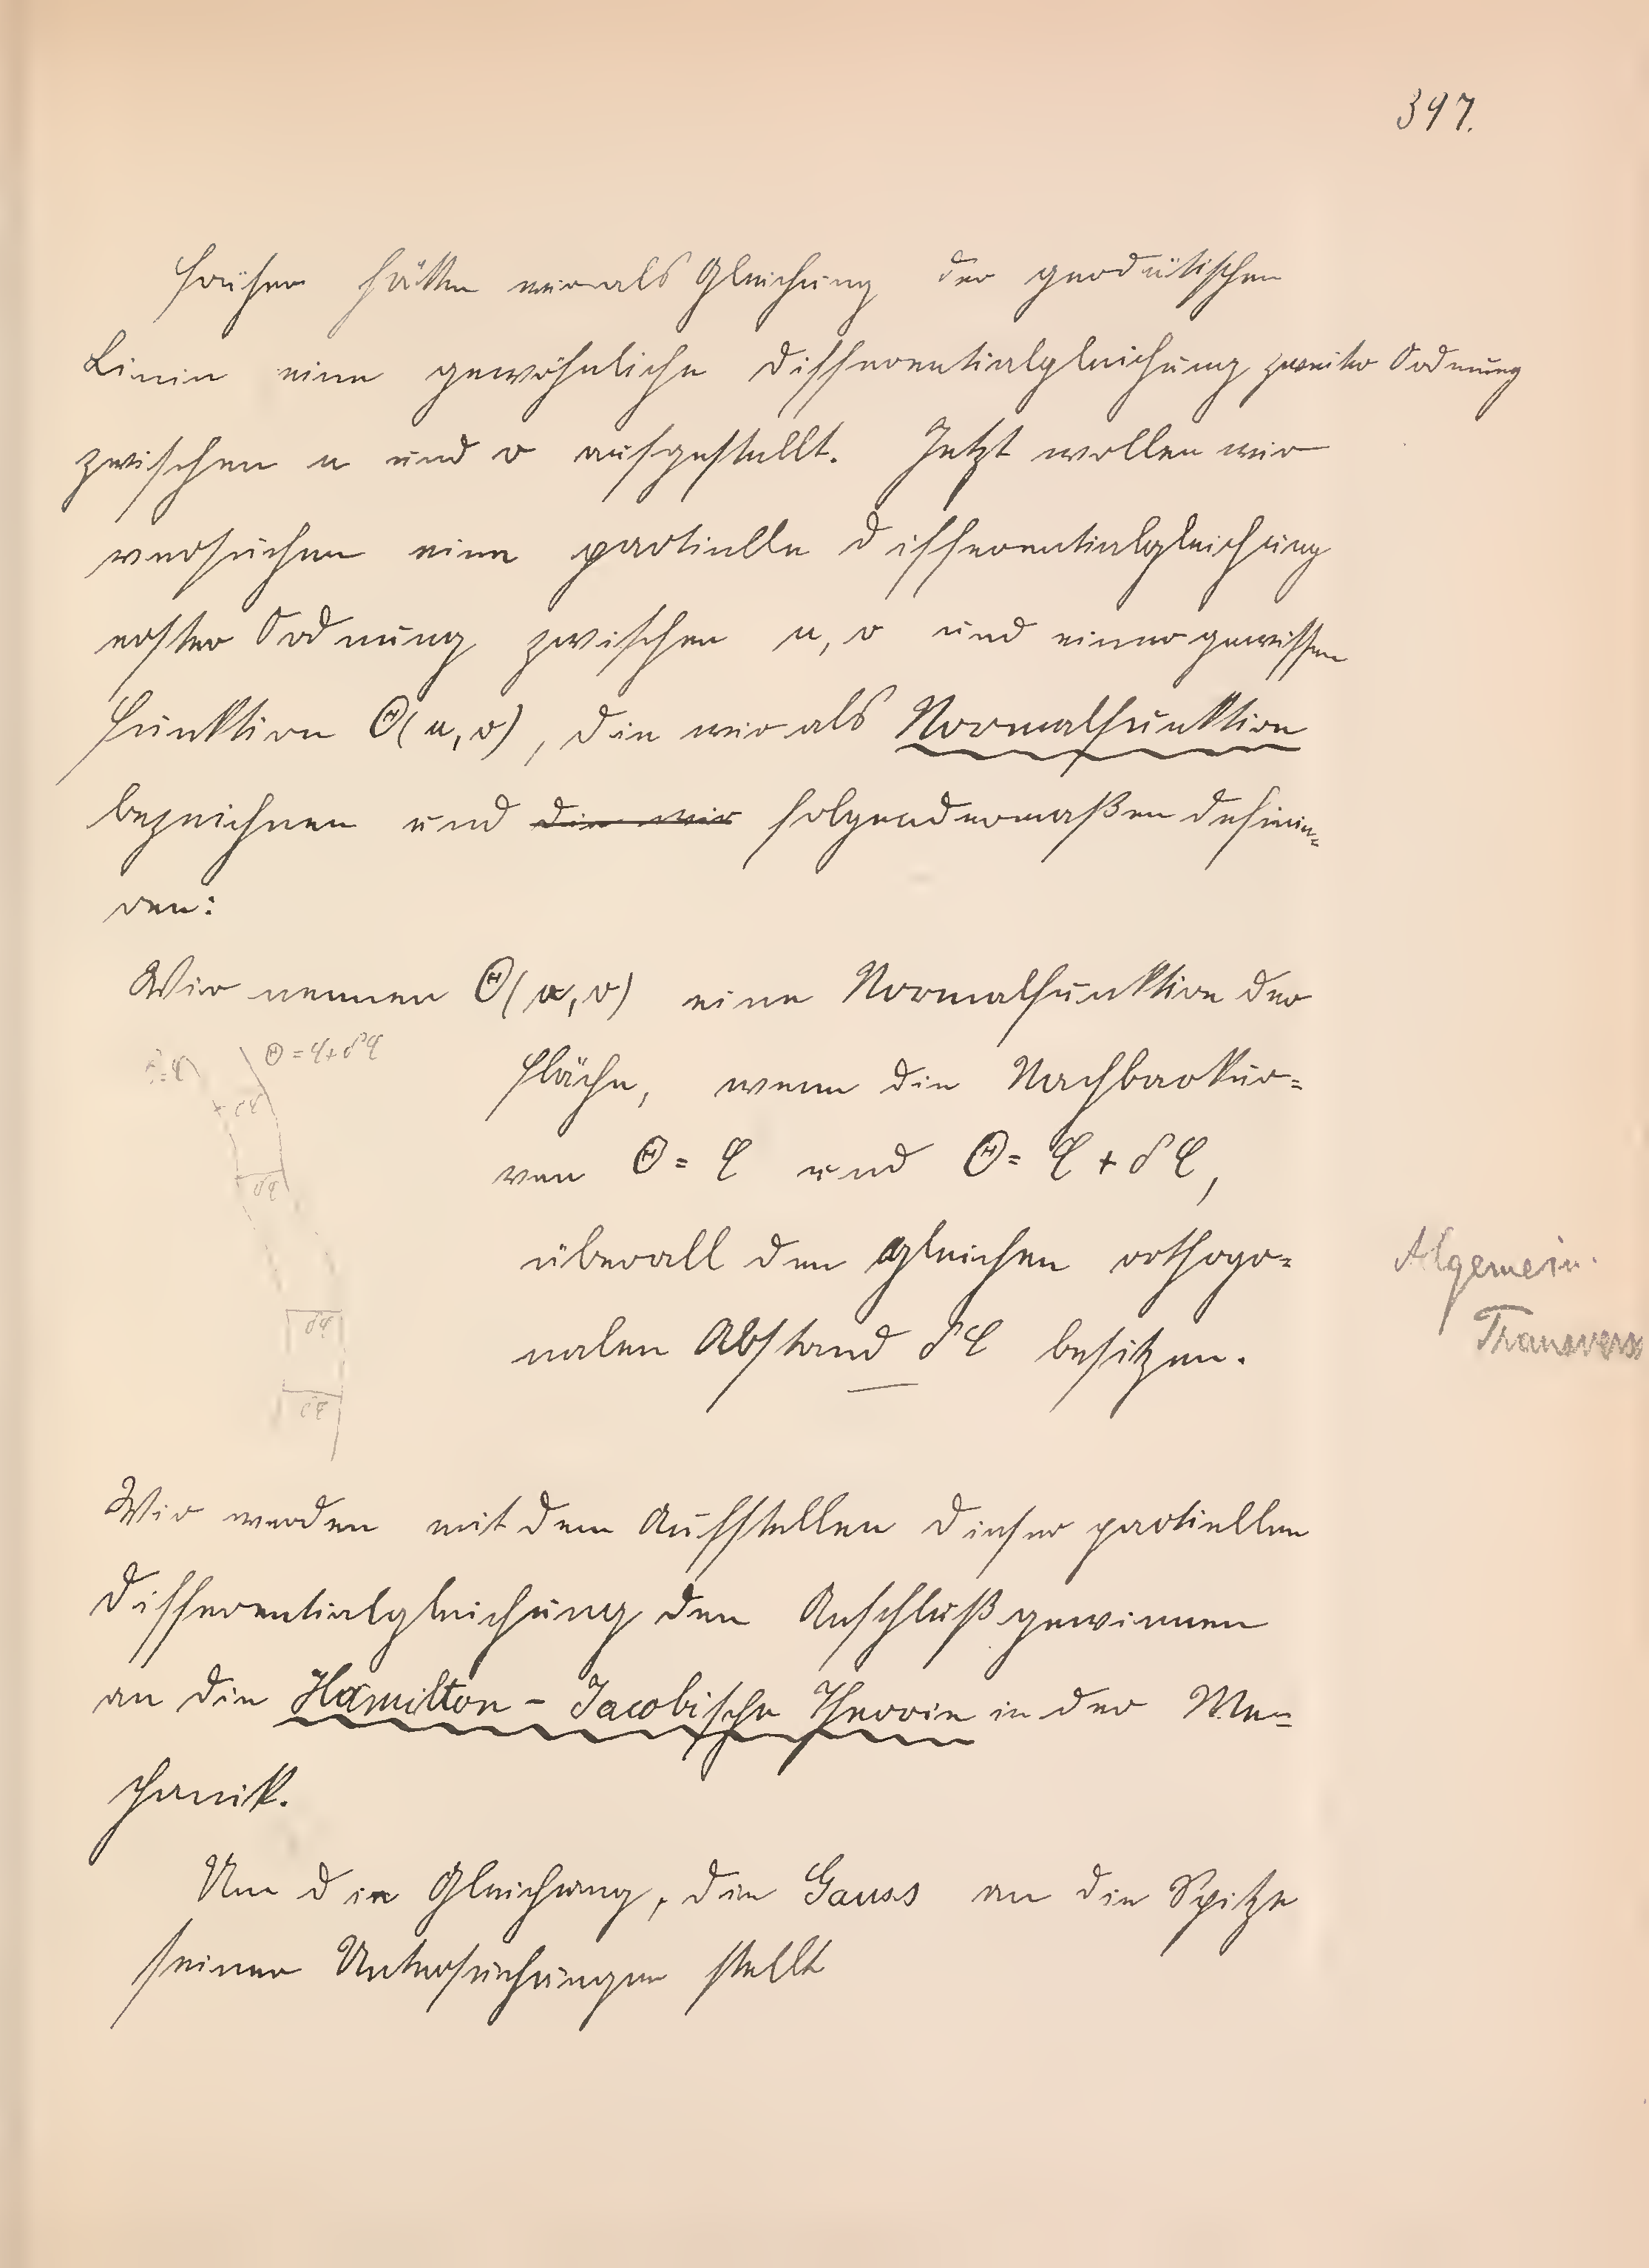 397.
Früher hätten wir als Gleichung der geodätischen
Linien eine gewöhnliche Differentialgleichung zweiter Ordnung
zwischen u und v aufgestellt. Jetzt wollen wir
versuchen eine partielle Differentialgleichung
erster Ordnung zwischen u, v und einer gewissen
Funktion Θ(u, v), die wir als Normalfunktion
bezeichnen und die wir folgendermaßen definie=
ren:
Wir nennen Θ(u, v) eine Normalfunktion der
Fläche, wenn die Nachbarkur=
ven Θ = φ und Θ = φ + δφ,
überall den gleichen orthogo=
nalen Abstand δφ besitzen.
Θ = φ + δφ
δφ
δφ
δφ
Allgemein.
Transvers
Wir werden mit dem Aufstellen dieser partiellen
Differentialgleichung den Anschluß gewinnen
an die Hamilton - Jacobische Theorie in der Me=
chanik.
Um die Gleichung, die Gauss an die Spitze
seiner Untersuchungen stellt